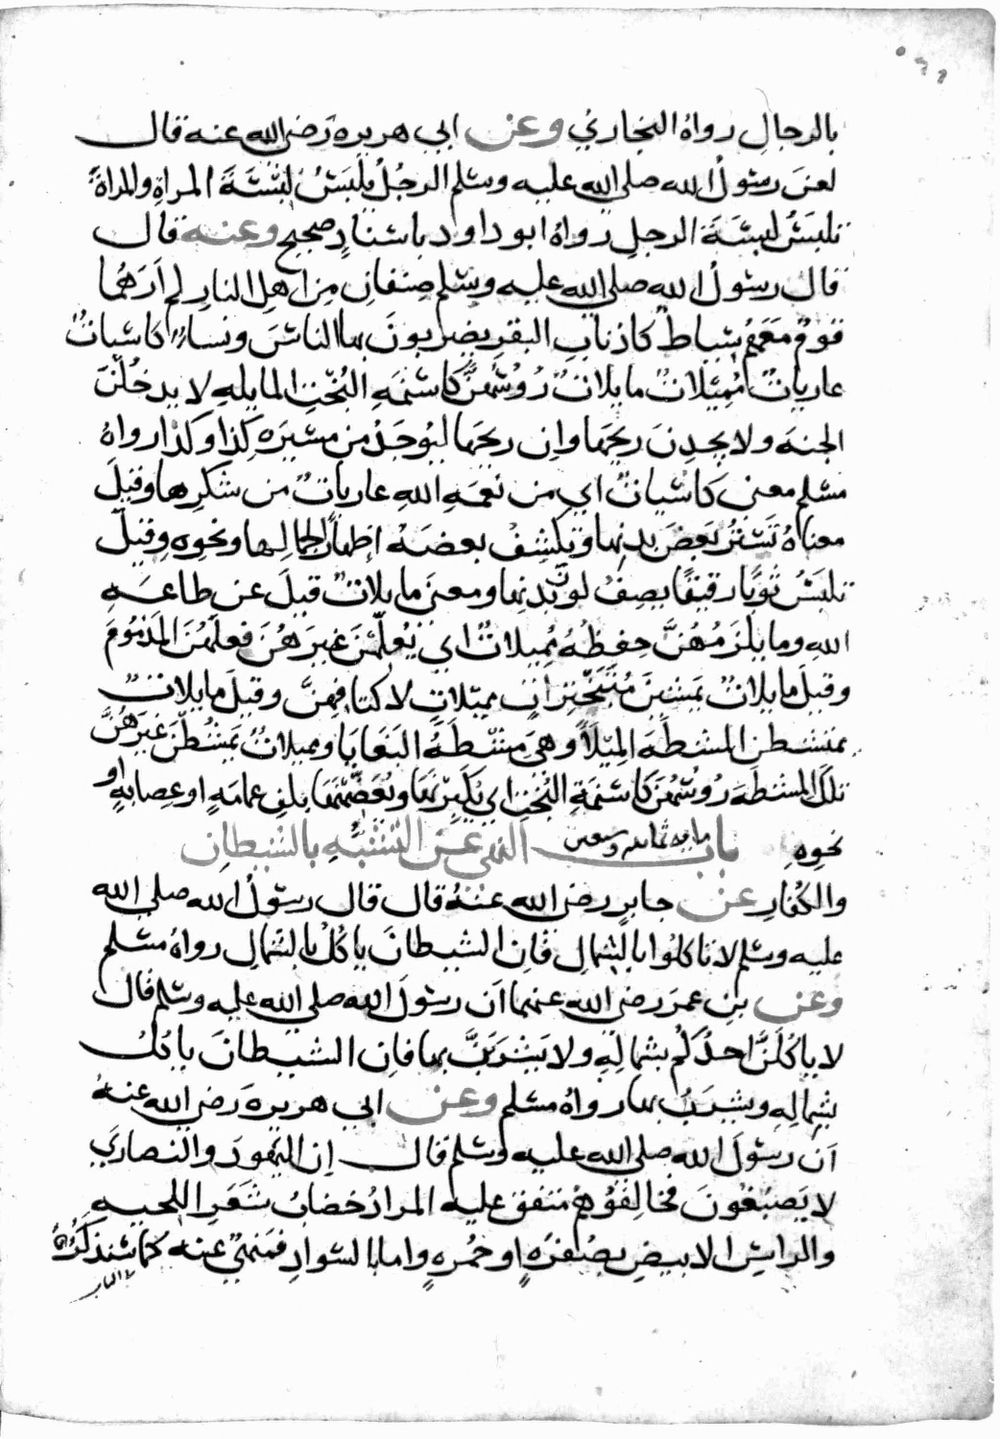 بالرجالِ رواهُ البخاري وعن ابي هريره رَضي الله عنه قال
لعنَ رسولُ الله صلى الله عليه وسلم الرجُلَ يلبَسُ لِبْسَةَ المراةِ والمراةَ
تلبَسُ لِبسَةَ الرجلِ رواهُ ابو داود باسنادٍ صحيحٍ وعنه قال
قال رسولُ الله صلى الله عليه وسلم صنفانِ مِن اهلِ النارِ لم اَرَهُما
قومٌ مَعَهُم سياطٌ كاذنابِ البقرِ يضربونَ بها الناسَ ونساءٌ كاسياتٌ
عارياتٌ مُمِيلاتٌ مايلاتٌ رُوُسُهُنَّ كاَسنمةِ البُخْتِ المايلةِ لا يدخُلْنَ
الجنةَ ولا يجدنَ ريحَها وان ريحَها ليُوجَدُ من مسيرَةِ كذا وكذا رواهُ
مسلم معنى كاَسياتٌ اي من نعمةِ اللهِ عارياتٌ من شكرِها وقيلَ
معناهُ تَستُرُ بَعضَ بدنِها وتكشِفُ بعضَهُ اظهارًا لجمالِها ونحوِه وقيلَ
تلبَسُ ثوبًا رقيقًا يصِفُ لونَ بدنِها ومعنى مايلاتٌ قيلَ عن طاعةِ
اللهِ وما يلزَمُهُنَّ حِفظُهُ مُميلاتٌ اي يُعلِّمْنَ غيرَهُنَّ فعلَهُنَّ المذمُومَ
وقيلَ مايلاتٌ يَمشينَ مُتَبَختِراتٍ مميلاتٍ لاكتافِهِنَّ وقيلَ مايلاتٌ
يمتشطنَ المشطةَ المَيلاَ وهيَ مِشطَةُ البَغايَا ومميلاتٌ يمشُطنَ غيرَهُنَّ
تلكَ المشطَةَ رُوُسُهُنَّ كاسنمةِ البُخْتِ اي يُكبِّرنَها ويُعَظِّمْنَها بلفِ عمامةٍ اوعِصابةٍ او
نحوِه باب مايه ثامن وسبعين النهي عن التشبُّهِ بالشيطان
والكُفارِ عن جابرٍ رضي الله عنهُ قال قال رسولُ الله صلى الله
عليه وسلم لا تاكلُوا بالشمالِ فان الشيطانَ ياكُلُ بالشمالِ رواهُ مسلم
وعن بنِ عمرَ رضي الله عنهما اَن رسولَ الله صلى الله عليه وسلم قال
لا ياكُلَنَّ احدُكُم بشمالِهِ ولا يَشرَبَنَّ بها فان الشيطانَ ياكلُ
بشمالِهِ ويشربُ بها رواهُ مسلم وعن ابي هريرةَ رَضي الله عنهُ
اَن رسولَ الله صلى الله عليه وسلم قال اِن اليَهودَ والنصارى
لا يَصبُغُونَ فخالِفُوهُمْ متفق عليه المرادُ خضابُ شَعَرِ اللحيةِ
والراسِ الابيضِ بصُفرَةٍ او حُمرةٍ واما بالسوادِ فمنهيٌ عنه كما سنذكُرُهُ
في الباب